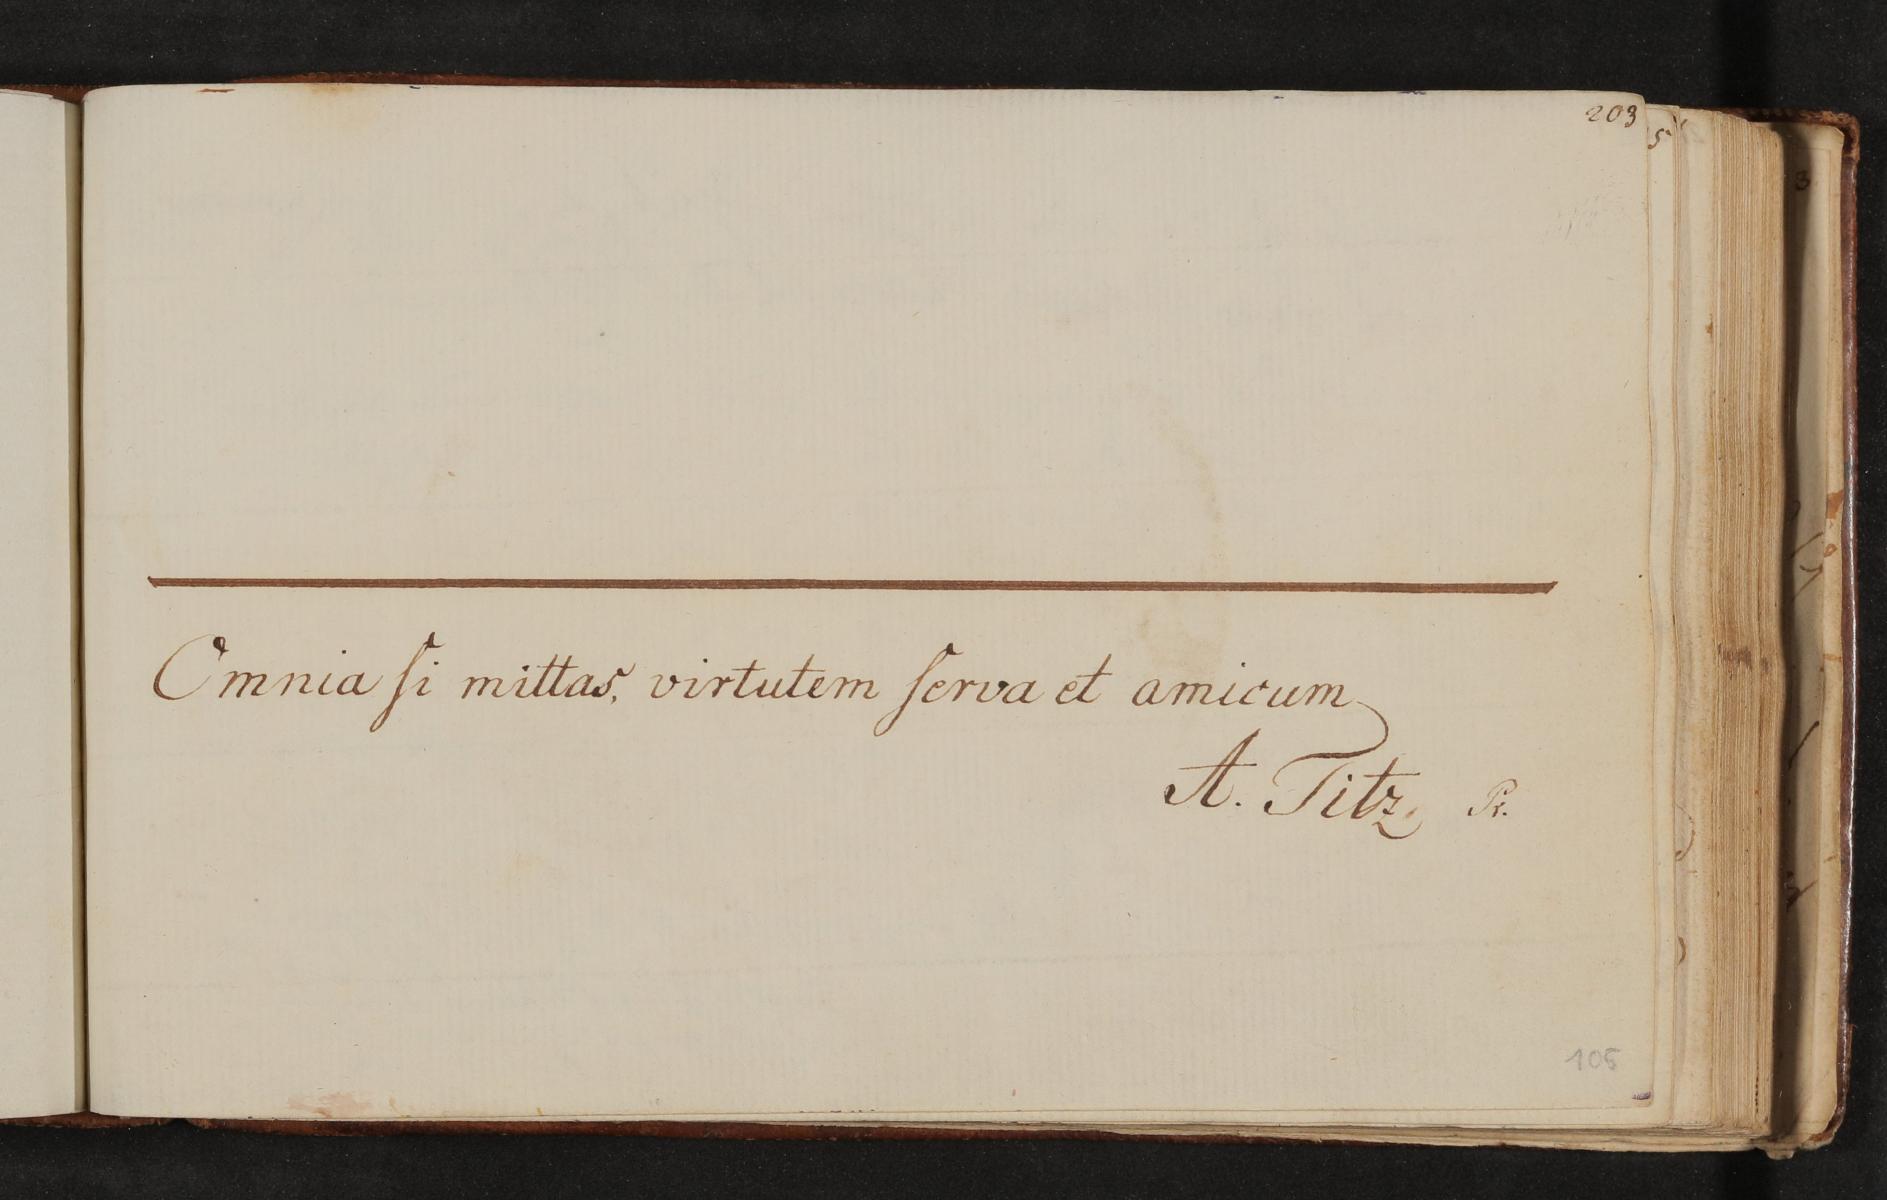 203
5
3
Omnia ſi mittas, virtutem ſerva et amicum
A. Titz Pr.
105